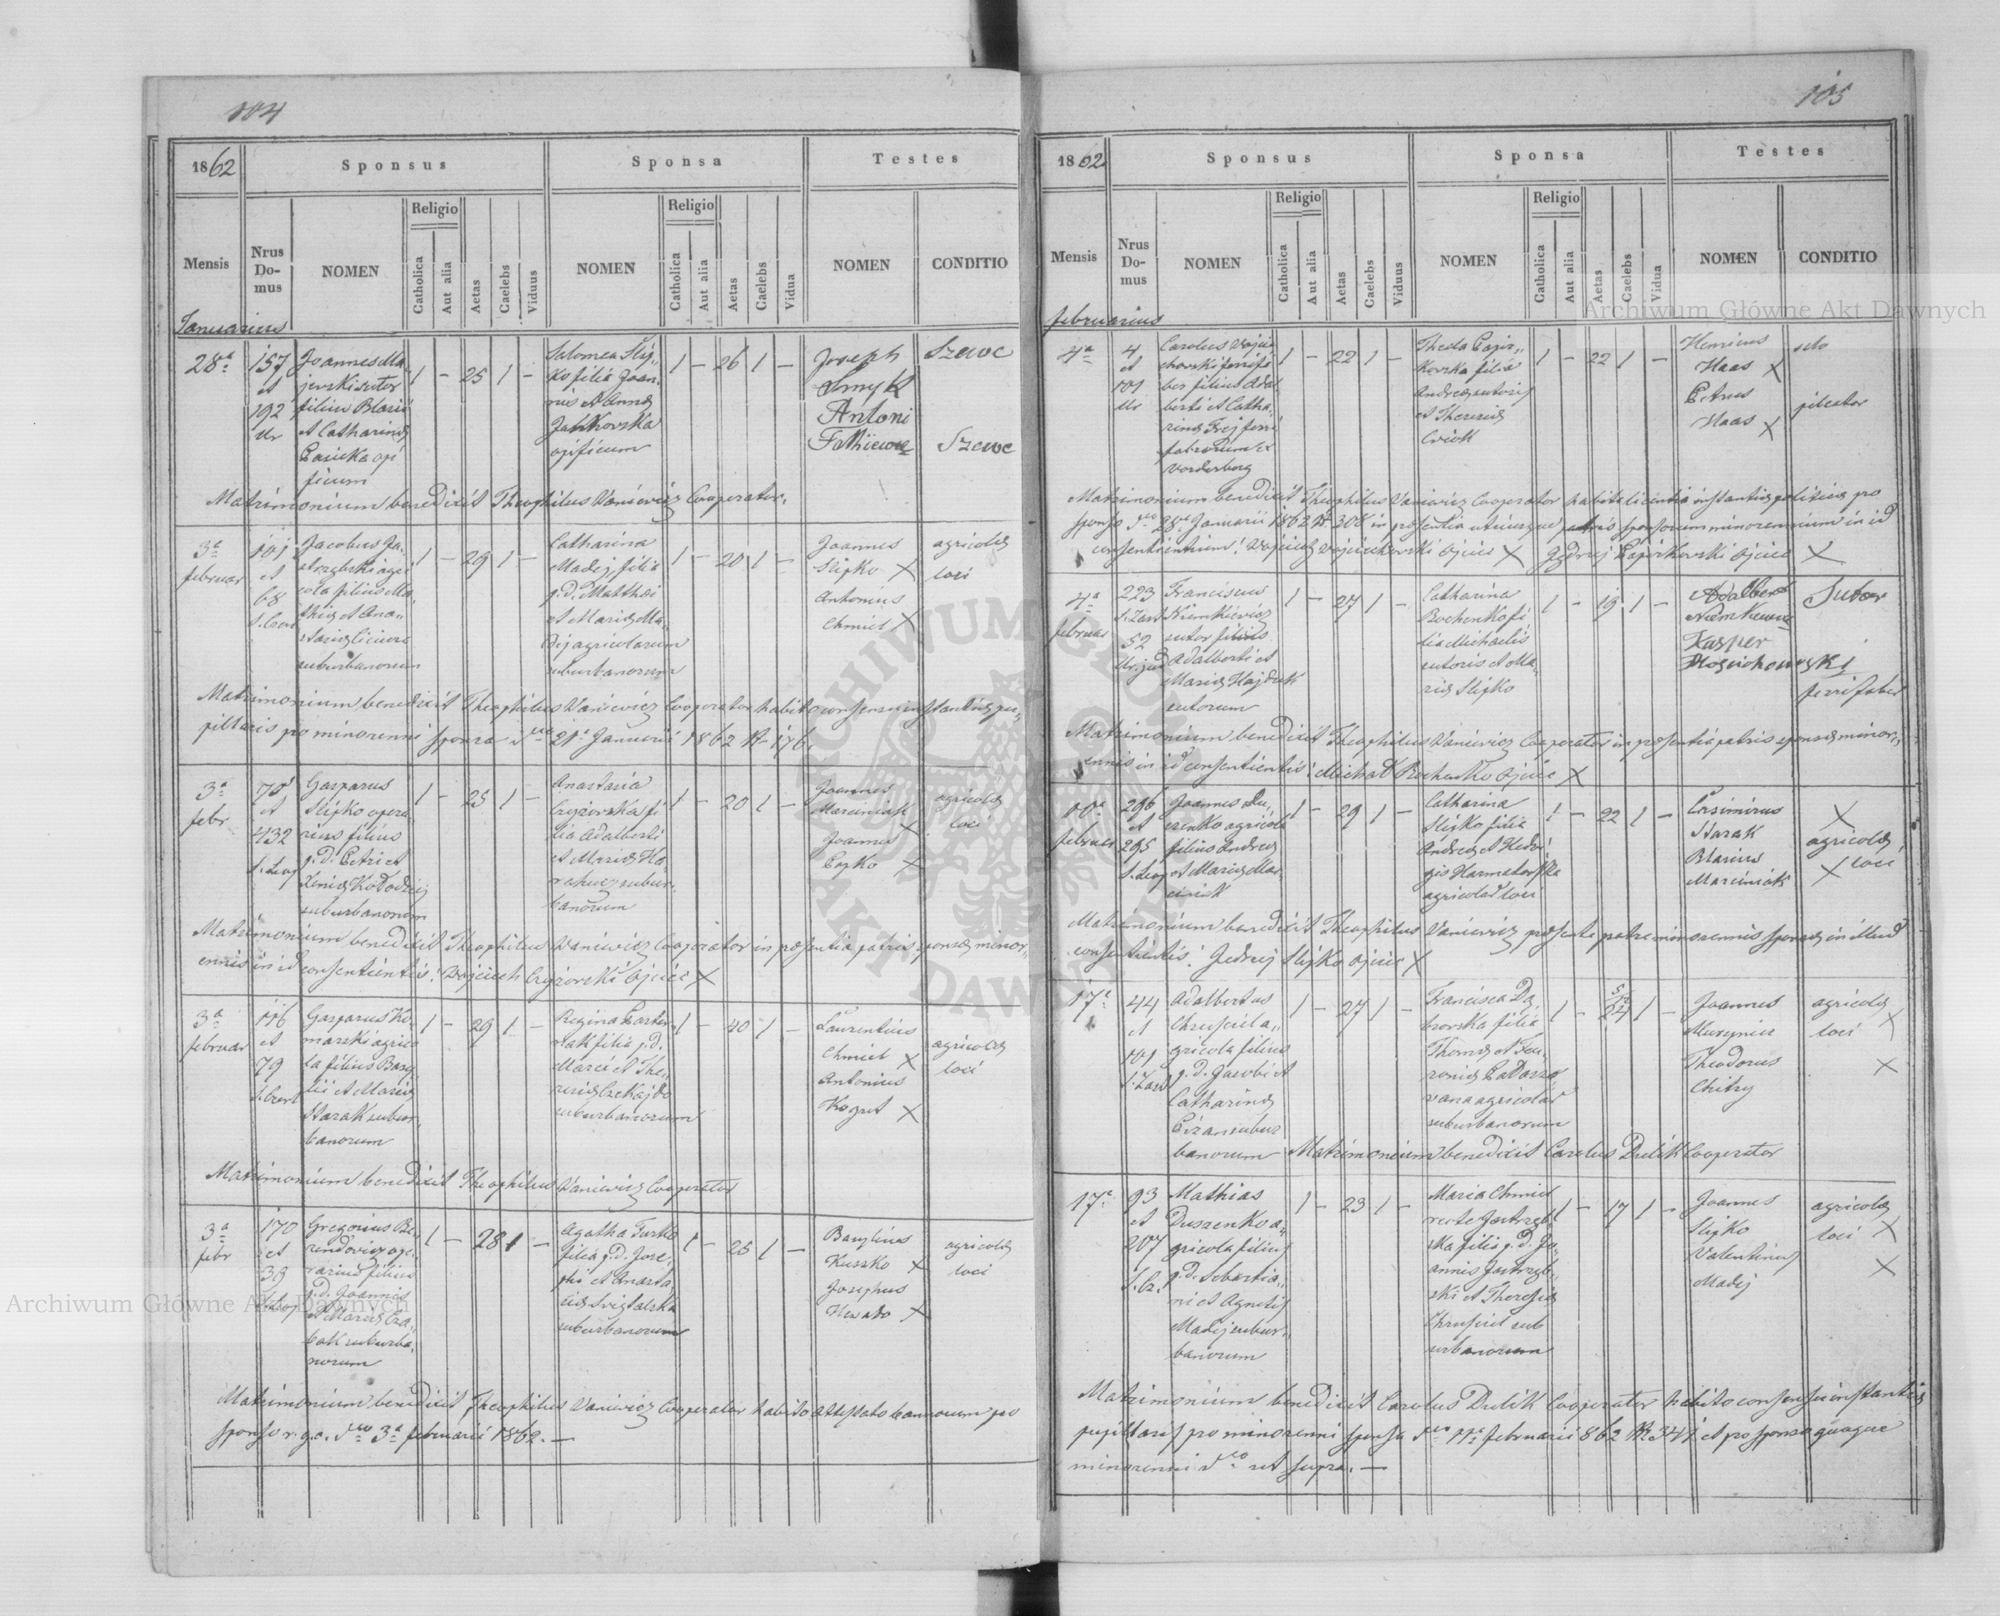 104
1862
Sponsus
Sponsa
Testes
Mensis
Nrus Do-mus
NOMEN
Religio
Catholica
Aut alia
Aetas
Caelebs
Viduus
NOMEN
Religio
Catholica
Aut alia
Aetas
Caelebs
Vidua
NOMEN
CONDITIO
Januarius
28a 157 et 192 Ur
Joannes Ma-
jerski sutor
filius Blasii
et Catharinæ
Pasieka opi
ficum
1 – 25 1 –
Salomea Slip-
ko filia Joan-
nis et Annæ
Jankovska
opificum
1 – 26 1 –
Joseph
Smyk
Antoni
Szewc
Szewc
Matrimonium benedixit Theophilus Vanievicz Cooperator.
3a februar 101 et 68
Jacobus Ja-
strzębski agri
cola filius Ma-
thiæ et Ana-
stasiæ
suburbanorum
1 – 29 1 –
Catharina
Madej filia
p.d. Matthæi
et Mariæ Ma-
dej agricolarum
suburbanorum
1 – 20 1 –
Joannes
Slipko X
Antonius
Chmiel X
agricolæ
loci
Matrimonium benedixit Theophilus Vanievicz Cooperator habito consensu instantiæ pu-
pillaris pro minorenni sponsa dto 21a Januarii 1862 N 176.
3a febr 70 et 432
Gasparus
Slipko opera-
rius filius
p.d. Petri et
Xeniæ Kołodziej
suburbanorum
1 – 25 1 –
Anastasia
Czyżovska fi
lia Adalberti
et Mariæ Ka-
subur-
banorum
1 – 20 1 –
Joannes
Marciniak X
Joannes
Popko X
agricolæ
loci
Matrimonium benedixit Theophilus Vanievicz Cooperator in præsentia patris sponsæ minor-
ennis in id consentientis: Wojciech Czyżovski Ojciec X
3a februar 116 et 79
Gasparus Ko-
marski agrico
la filius Basi-
lii et Mariæ
Harak subur-
banorum
1 – 29 1 –
Regina Paster-
nak filia p.d.
Marci et The-
resiæ Czekajdo
suburbanorum
1 – 40 1 –
Laurentius
Chmiel X
Antonius
Kogut X
agricolæ
loci
Matrimonium benedixit Theophilus Vanievicz Cooperator
3a febr 170 et 39
Gregorius Be-
rendovicz ope-
rarius filius
p.d. Joannis
et Mariæ Cza-
bak suburba-
norum
1 – 28 1 –
Agatha Furko
filia p.d. Jose-
phi et Anasta-
siæ
suburbanorum
1 – 25 1 –
Basylius
Kuszko X
Josephus
X
agricolæ
loci
Matrimonium benedixit Theophilus Vanievicz Cooperator habito attestato bannorum pro
sponso r.g.c. dto 3a februarii 1862. –
105
1862
Sponsus
Sponsa
Testes
Mensis
Nrus Do-mus
NOMEN
Religio
Catholica
Aut alia
Aetas
Caelebs
Viduus
NOMEN
Religio
Catholica
Aut alia
Aetas
Caelebs
Vidua
NOMEN
CONDITIO
februarius
4a 4 et 101 Ur
Carolus Wojcie
chovski ferrifa
ber filius Adal
berti et Catha-
rinæ Frej ferri
fabrorum ex
Vorderberg
1 – 22 1 –
Thecla Papir-
kovska filia
Andreæ sutoris
et Theresiæ
Cwiok
1 – 22 1 –
Henricus
Haas X
Petrus
Haas X
pileator
Matrimonium benedixit Theophilus Vanievicz Cooperator habita licentia instantiæ politicæ pro
sponso dto 28a Januarii 1862 N. 308 in præsentia utriusque patris sponsorum minorennium in id
consentientium: Wojciech Wojciechovski Ojciec X Jędrzej Papirkovski Ojciec X
4a februar 223 52
Franciscus
Niemkievicz
sutor filius
Adalberti et
Mariæ Hajduk
sutorum
1 – 27 1 –
Catharina
Bochenko fi-
lia Michaelis
sutoris et Ma-
riæ Slipko
1 – 19 1 –
Adalbert
Niemkiewicz
Kasper
Sutor
ferri faber
Matrimonium benedixit Theophilus Vanievicz Cooperator in præsentia patris sponsæ minor-
ennis in id consentientis: Michał Bochenko Ojciec X
10a februar 296 et 295
Joannes Du-
szenko agricola
filius Andreæ
et Mariæ Mar-
ciniak
1 – 29 1 –
Catharina
Slipko filia
Andreæ et Hedvi
gis Harmatovska
agricolarum loci
1 – 22 1 –
Casimirus
Harak
Blasius
Marciniak
X
agricolæ
X loci
Matrimonium benedixit Theophilus Vanievicz præsente patre minorennis sponsæ in illud
consentientis: Jędrzej Slipko Ojciec X
17a 44 et 101
Adalbertus
Chruściel a-
gricola filius
p.d. Jacobi et
Catharinæ
subur
banorum
1 – 27 1 –
Francisca Dą-
brovska filia
Thomæ et
agricolar
suburbanorum
1 – 24 1 –
Joannes
Theodorus
Chitry
agricolæ
loci X
X
Matrimonium benedixit Carolus Dulik Cooperator
17a 93 et 207
Mathias
Duszenko a-
gricola filius
p.d. Sebastia-
ni et Agnetis
Madej subur-
banorum
1 – 23 1 –
Maria Chmiel
recte Jastrzęb-
ska filia p.d. Jo-
annis Jastrzęb-
ski et Theresiæ
Chruściel sub
urbanorum
1 – 17 1 –
Joannes
Slipko
Valentinus
Madej
agricolæ
loci X
X
Matrimonium benedixit Carolus Dulik Cooperator habito consensu instantiæ
pupillaris pro minorenni sponsa dto 11a februarii 862 N 341 et pro sponso quoque
minorenni dto ut supra. –
Archiwum Główne Akt Dawnych
Archiwum Główne Akt Dawnych
ARCHIWUM GŁÓWNE AKT DAWNYCH